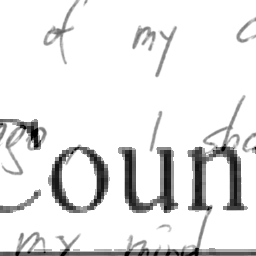 of my
ago I sha
Coun
my mind.